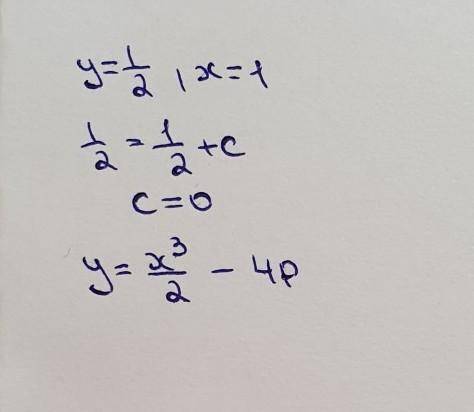 y = 1/2 , x = 1
1/2 = 1/2 + c
c = 0
y = x³/2 - 4p